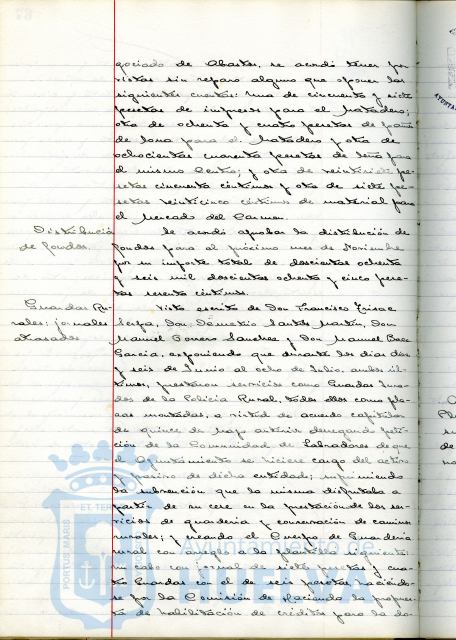 gociado de Abastos, se acordó tener por
vistas sin reparo alguno que oponer las
siguientes cuentas: Una de cincuenta y siete
pesetas de impresos para el Matadero;
otra de ochenta y cuatro pesetas de paños
de lona para el Matadero y otra de
ochocientas cuarenta pesetas de leña para
el mismo Centro; y otra de veintisiete pe-
setas cincuenta céntimos y otra de siete pe-
setas veinticinco céntimos de material para
el Mercado del Carmen.
Distribución
de fondos.
Se acordó aprobar la distribución de
fondos para el próximo mes de Noviembre
por su importe total de doscientas ochenta
y seis mil doscientas ochenta y cinco pese-
tas sesenta céntimos.
Guardas Ru-
rales; jornales
atrasados
Visto escrito de Don Francisco
Don Demetrio Santos Martín, Don
Manuel Romero Sanchez y Don Manuel Baez
Garcia, exponiendo que durante los dias diez
y seis de Junio al ocho de Julio, ambos úl-
timos, prestaron servicios como Guardas Jura-
dos de la Policía Rural, todos ellos como pla-
zas montadas, a virtud de acuerdo capitular
de quince de Mayo anterior denegando peti-
ción de la Comunidad de Labradores de que
el Ayuntamiento se hiciere cargo del activo
y pasivo de dicha entidad; suprimiendo
la subvención que la misma disfrutaba a
partir de su cese en la prestación de los ser-
vicios de guardería y conservación de caminos
rurales; y creando el Cuerpo de Guardería
rural con arreglo a la plantilla siguiente:
un cabo con jornal de siete pesetas y cua-
tro Guardas con el de seis pesetas, haciendo-
se por la Comisión de Hacienda la propues-
ta de habilitación de créditos para la do-
Ayuntamiento de
HUELVA
PORTUS MARIS
ET TER